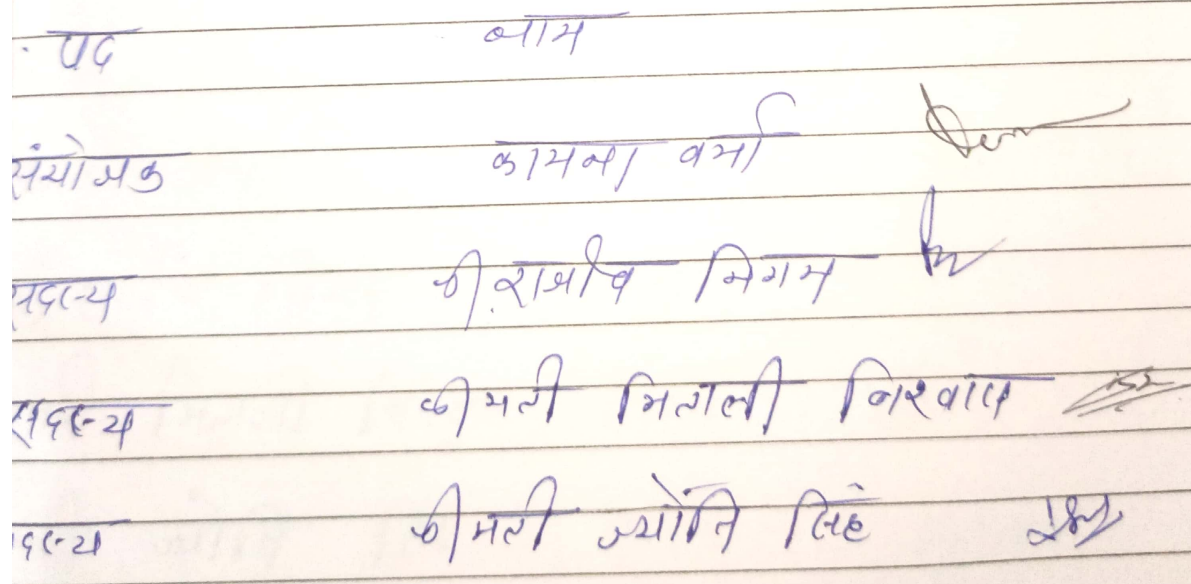 पद नाम
संयोजक कामना वर्मा
सदस्य श्री राजीव निगम
सदस्य श्रीमती मिताली
सदस्य श्रीमती ज्योति सिंह